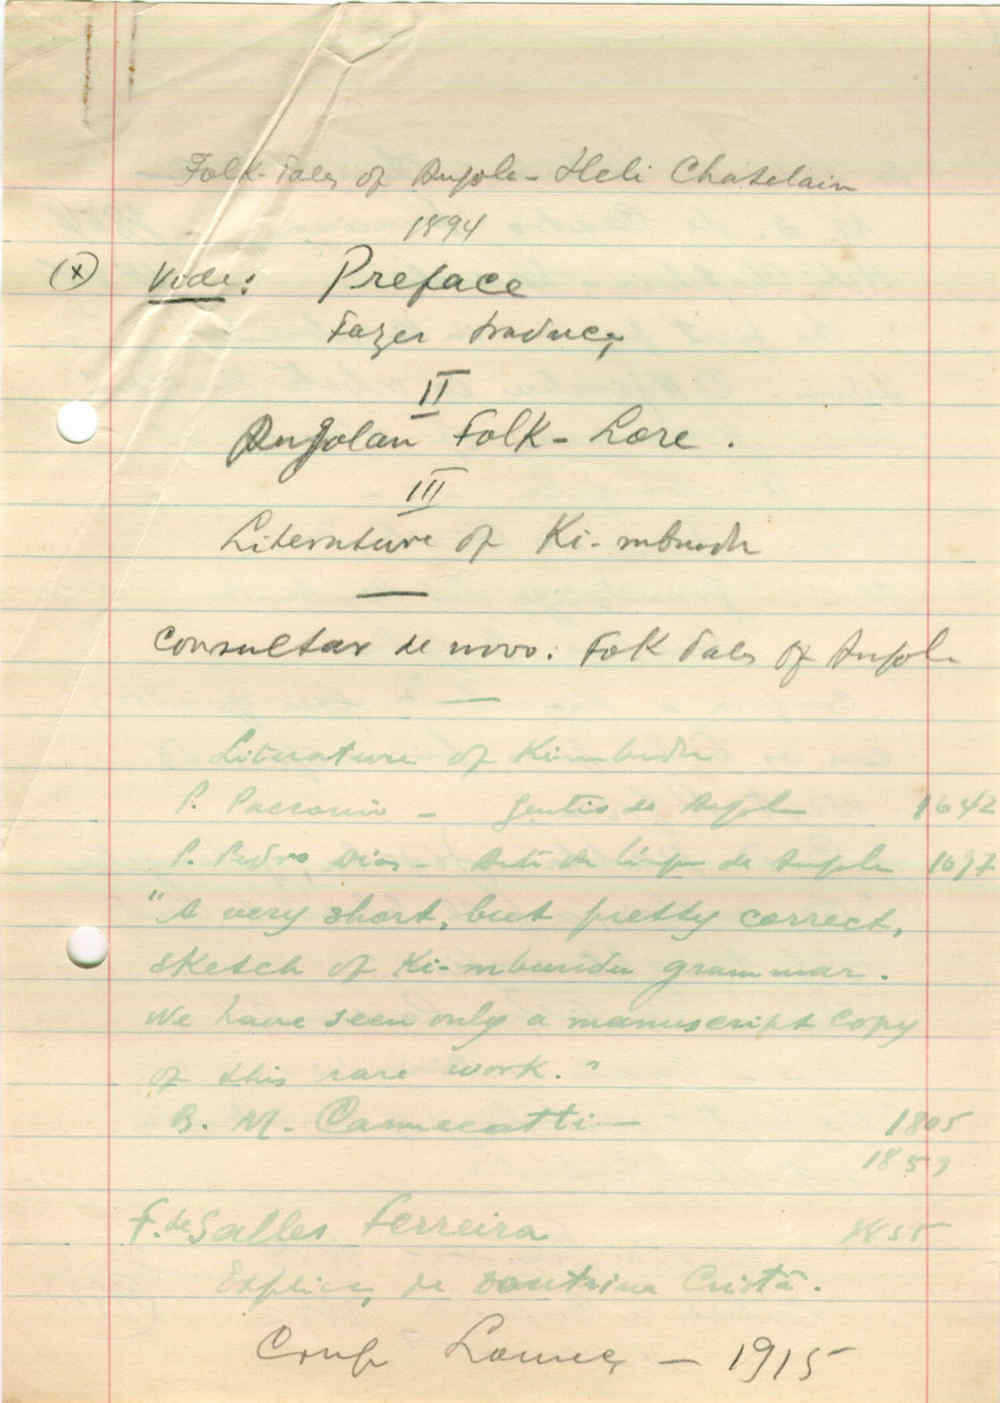 Folk-Tales of Angola - Heli Chatelain
1894
(x) Vide: Preface
Fazer traducç
II
Angolan Folk-Lore.
III
Literature of Ki-mbundu
—
Consultar de novo: Folk Tales of Angola
—
Literature of Kimbundu
P. Pacconio - Gentio de Angola 1642
P. Pedro Dias - Arte da língua de Angola 1697
"A very short, but pretty correct,
sketch of Ki-mbundu grammar.
We have seen only a manuscript copy
of this rare work."
B. M. Cannecatti - 1805
F. de Salles Ferreira 1855
Explicç de Doutrina Cristã.
— 1915